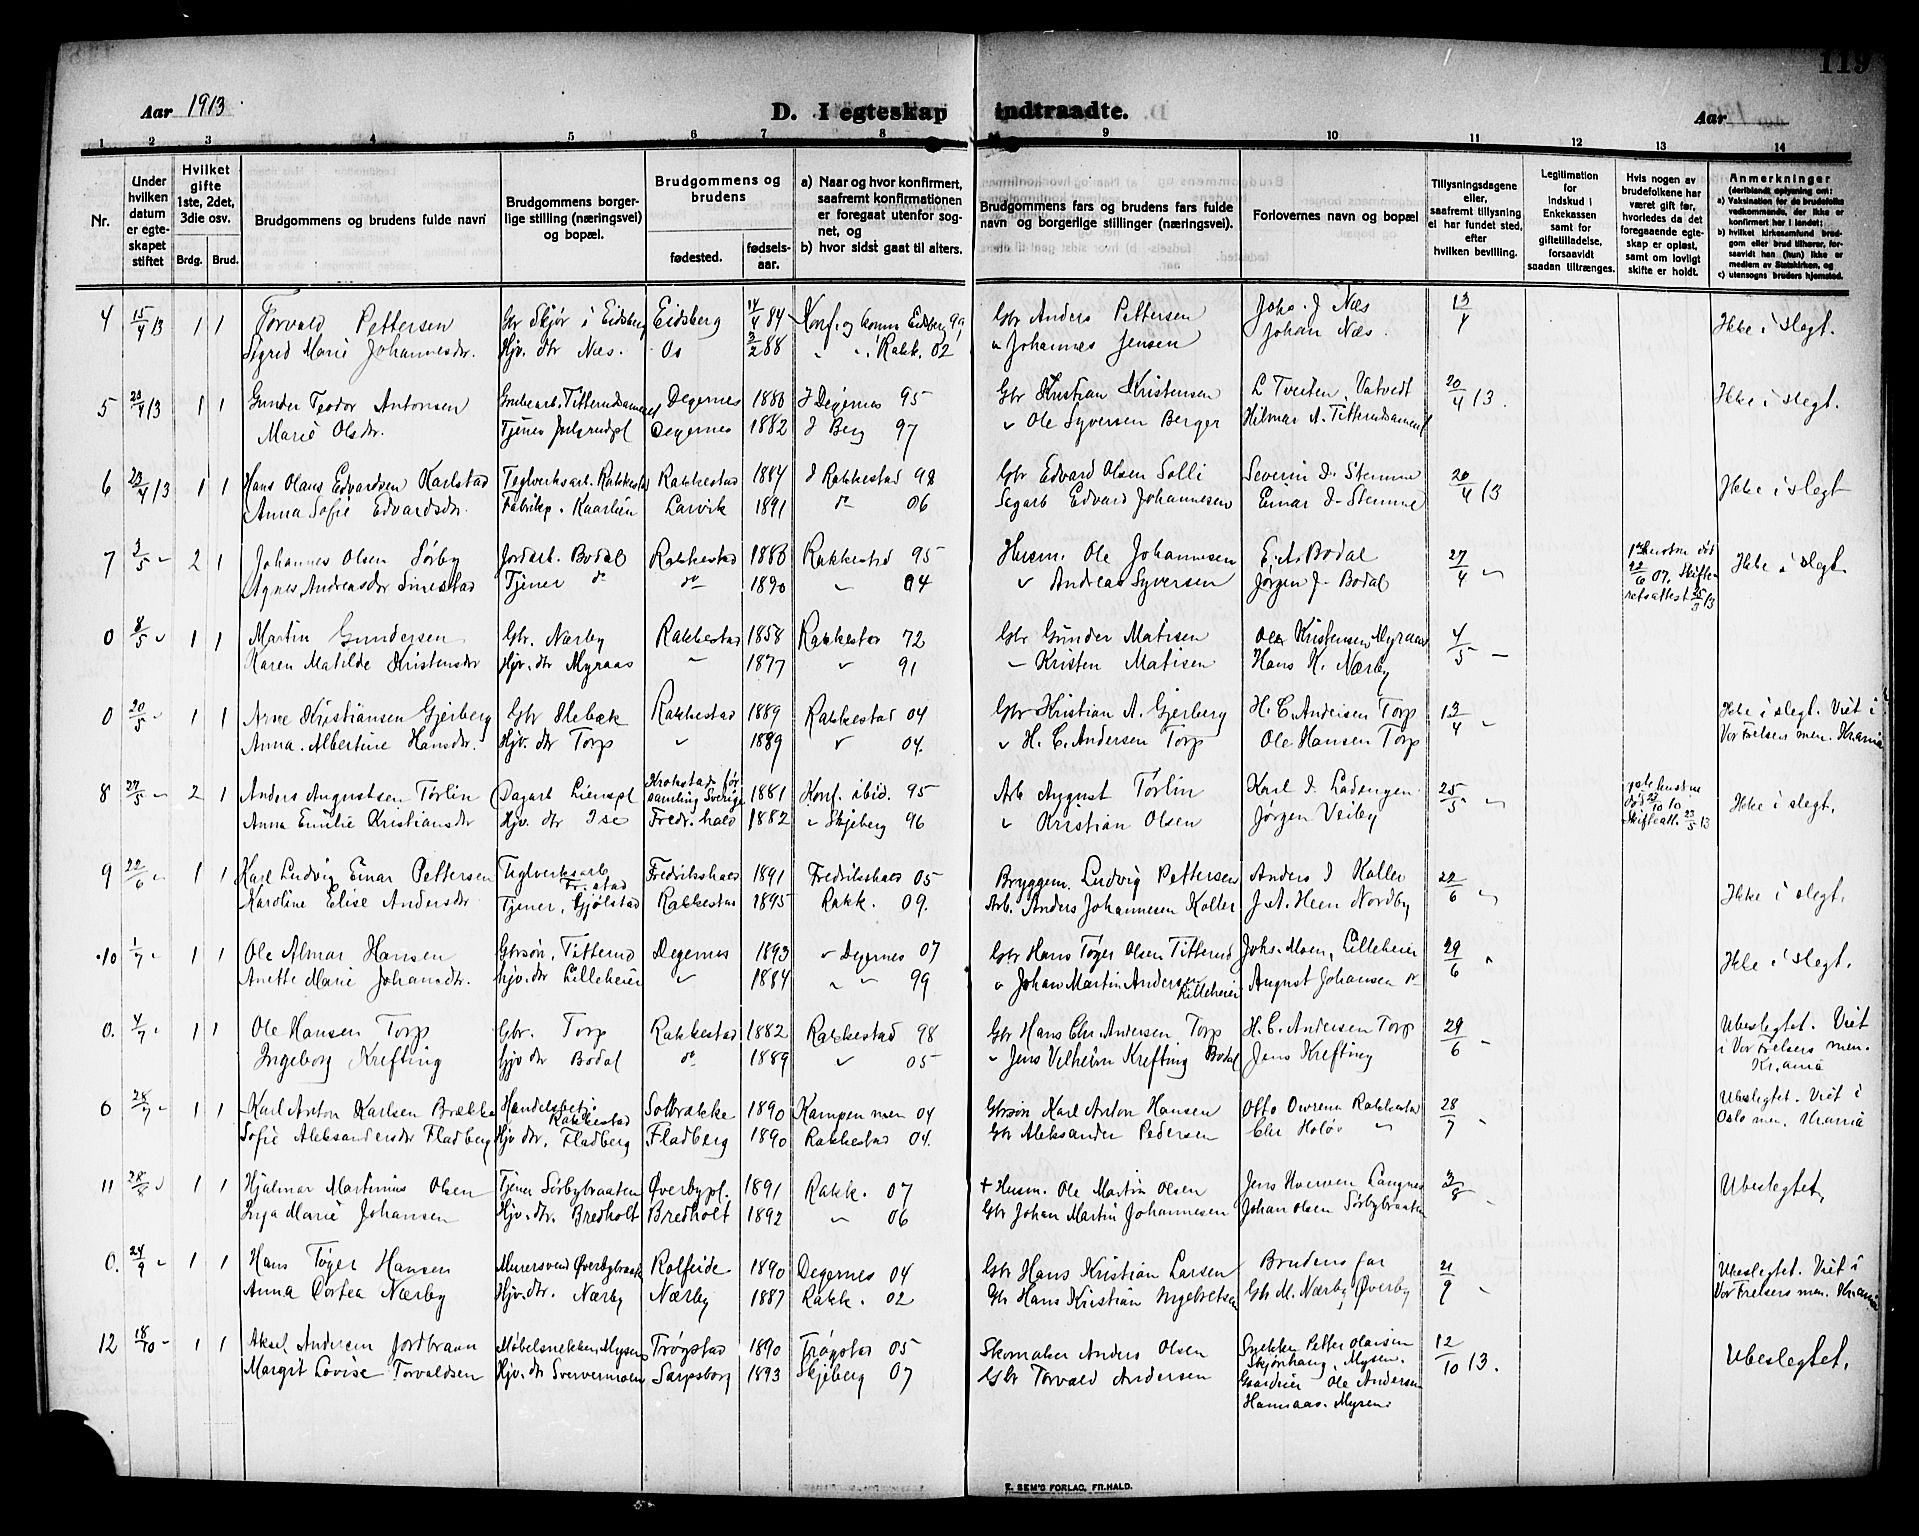 119
Aar 1913.
D. I egteskap indtraadte.
Aar
1 2 3 4 5 6 7 8 9 10 11 12 13 14
Nr.
Under hvilken datum er egteskapet stiftet
Hvilket gifte 1ste, 2det, 3die osv.
Brdg. Brud.
Brudgommens og brudens fulde navn
Brudgommens borgerlige stilling (næringsvei) og bopæl.
Brudgommens og brudens
fødested.
fødselsaar.
a) Naar og hvor konfirmert, saafremt konfirmationen er foregaat utenfor sognet, og
b) hvor sidst gaat til alters.
Brudgommens fars og brudens fars fulde navn og borgerlige stillinger (næringsvei).
Forlovernes navn og bopæl
Tillysningsdagene eller, saafremt tillysning ei har fundet sted, efter hvilken bevilling.
Legitimation for indskud i Enkekassen samt for giftetilladelse, forsaavidt saadan tiltrænges.
Hvis nogen av brudefolkene har været gift før, hvorledes da det foregaaende egteskap er opløst, samt om lovligt skifte er holdt.
Anmerkninger (deriblandt oplysning om:
a) Vaksination for de brudefolks vedkommende, der ikke er konfirmert her i landet;
b) hvilket kirkesamfund brudgom eller brud tilhører, forsaavidt han (hun) ikke er medlem av Statskirken, og
c) utensogns bruders hjemsted.
4 15/4 13 1 1 Torvald Pettersen Gbr Skjør i Eidsberg Eidsberg 14/4 84 Konf. og komm Eidsberg 99 Gbr Anders Pettersen Johs. J Næs 13/4 Ikke i slegt.
Sigrid Marie Johannesdr. Hjv. dtr Næs. Os 3/2 88 " " Rakk. 02 " Johannes Jensen Johan Næs.
5 20/4 13 1 1 Gunder Teodor Antonsen Grubearb. Titterudsameiet Degernes 1880 I Degernes 95 Gbr Kristian Kristensen L Tveiten, Vatvedt 20/4 13. Ikke i slegt.
Marie Olsdr. Tjener Degernes 1882 I Berg 97 " Ole Syversen Berger Hilmar A. Titterudsameiet
6 23/4 13 1 1 Hans Olaus Edvardsen Karlstad Teglverksarb. Rakkestad Rakkestad 1884 I Rakkestad 98 Gbr Edvard Olsen Solli Severin D. Stemme 20/4 13 Ikke i slegt
Anna Sofie Edvardsdr. Fabrikp. Kaarlien Larvik 1891 do 06 Sagarb Edvard Johannesen Einar D. Stemme
7 3/5 " 2 1 Johannes Olsen Sørby Jordarb. Bodal Rakkestad 1880 Rakkestad 95 Husm. Ole Johannesen E. A. Bodal 27/4 " 1ste hustru død 22/6 07. Skifteretsattest 25/3 13 Ikke i slegt.
Agnes Andreasdr Sinestad Tjener do do 1890 " 04 " Andreas Syversen Jørgen J. Bodal
0 8/5 " 1 1 Martin Gundersen Gbr. Nærby Rakkestad 1858 Rakkestad 72 Gbr Gunder Matisen Ole Kristensen Myraas 4/5 "
Karen Matilde Kristensdr Hjv. dtr Myraas " 1877 " 91 " Kristen Matisen Hans K. Nærby
0 20/5 " 1 1 Arne Kristiansen Gjerberg Gbr Rakkestad 1889 Rakkestad 04 Gbr Kristian A. Gjerberg H. C. Andersen Torp 13/4 " Ikke i slegt. Viet i
Anna Albertine Hansdr. Hjv. dtr Torp " 1889 " 04. " H. C. Andersen Torp Ole Hansen Torp Vor Frelsers men. Kr.ania
8 27/5 " 2 1 Anders Augustsen Törlin Dagarb Lienspl Krokstads församling Sverige 1881 Konf. ibid. 95 Arb August Törlin Karl J. Ladengen 25/5 " 1ste hustru død 22/10 10 Skifteatt. 23/5 13 Ikke i slegt.
Anna Emilie Kristiansdr Hjv. dtr Ise Fredr.hald 1882 " Skjeberg 96 " Kristian Olsen Jørgen Veiby
9 22/6 " 1 1 Karl Ludvig Einar Pettersen Teglverksarb Fr.stad Fredrikshald 1891 Fredrikshald 05 Bryggem. Ludvig Pettersen Anders J Koller 22/6 " Ikke i slegt.
Karoline Elise Andersdr Tjener, Gjølstad Rakkestad 1895 Rakk. 09. Arb. Anders Johannesen Koller J. A. Heen Nordby
10 1/7 " 1 1 Ole Almar Hansen Gbrsøn, Titterud Degernes 1893 " Degernes 07 Gbr Hans Tøger Olsen Titterud Johs. Moen, Lilleheier 29/6 " Ikke i slegt.
Anette Marie Johansdtr. hjv. dtr Lilleheier " 1884 " " 99 " Johan Martin Andersen Lilleheier August Johansen do
0. 4/7 " 1 1 Ole Hansen Torp Gbr. Torp Rakkestad 1882 Rakkestad 98 Gbr Hans Chr. Andersen Torp H. C. Andersen Torp 29/6 " Ubeslegtet. Viet
Ingeborg Krefting Hjv dtr Bodal do 1889 " 05 " Jens Vilhelm Krefting Bodal Jens Krefting i Vor Frelsers men. Kr.ania
0 28/7 " 1 1 Karl Anton Karlsen Brække Handelsbetj. Rakkestad Solbrække 1890 Kampen men 04 Gbrsøn Karl Anton Hansen Otto Owren Rakkestad 28/7 " Ubeslegtet. Viet i
Sofie Aleksandersdr Fladberg Hjv dtr. Fladberg Fladberg 1890 Rakkestad 04. Gbr Aleksander Pedersen Chr Holøs " Oslo men. Kr.ania
11 28/8 " 1 1 Hjalmar Martinius Olsen Tjener Sørbybraaten Øverbypl. 1891 Rakk. 07 + Husm. Ole Martin Olsen Jens Haerven Langnes 3/8 " Ubeslegtet.
Inga Marie Johansen Hjv. dtr. Bredholt Bredholt 1892 " 06 Gbr Johan Martin Johannesen Johan Olsen Sørbybraaten
0. 24/9 " 1 1 Hans Tøger Hansen Murersvend Øverbybraate Kolfeide 1890 Degernes 04 Gbr Hans Kristian Larsen Brudens far 21/9 " Ubeslegtet. Viet i
Anna Dortea Nærby Hjv. dtr. Nærby Nærby 1887 Rakk. 02 Gbr Hans Kristian Ingebretsen Gbr M. Nærby Øverby Vor Frelsers men. Kr.ania
12 18/10 " 1 1 Aksel Andersen Jordbraan Møbelsnekker, Mysen Trøgstad 1890 Trøgstad 05 Skomaker Anders Olsen Snekker Petter Olavsen Skjønhaug, Mysen. 12/10 13. Ubeslegtet.
Margit Lovise Torvaldsen Hjv. dtr Sververmoen Sarpsborg 1893 Skjeberg 07 Gbr Torvald Andersen Gaardeier Ole Andersen Hannaas. Mysen.
E. SEM'S FORLAG, FR.HALD.